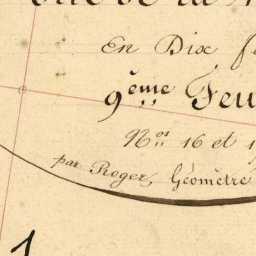 En Dix
9ème Feu
Nos 16 et 1
par Roger, Géomètre
1